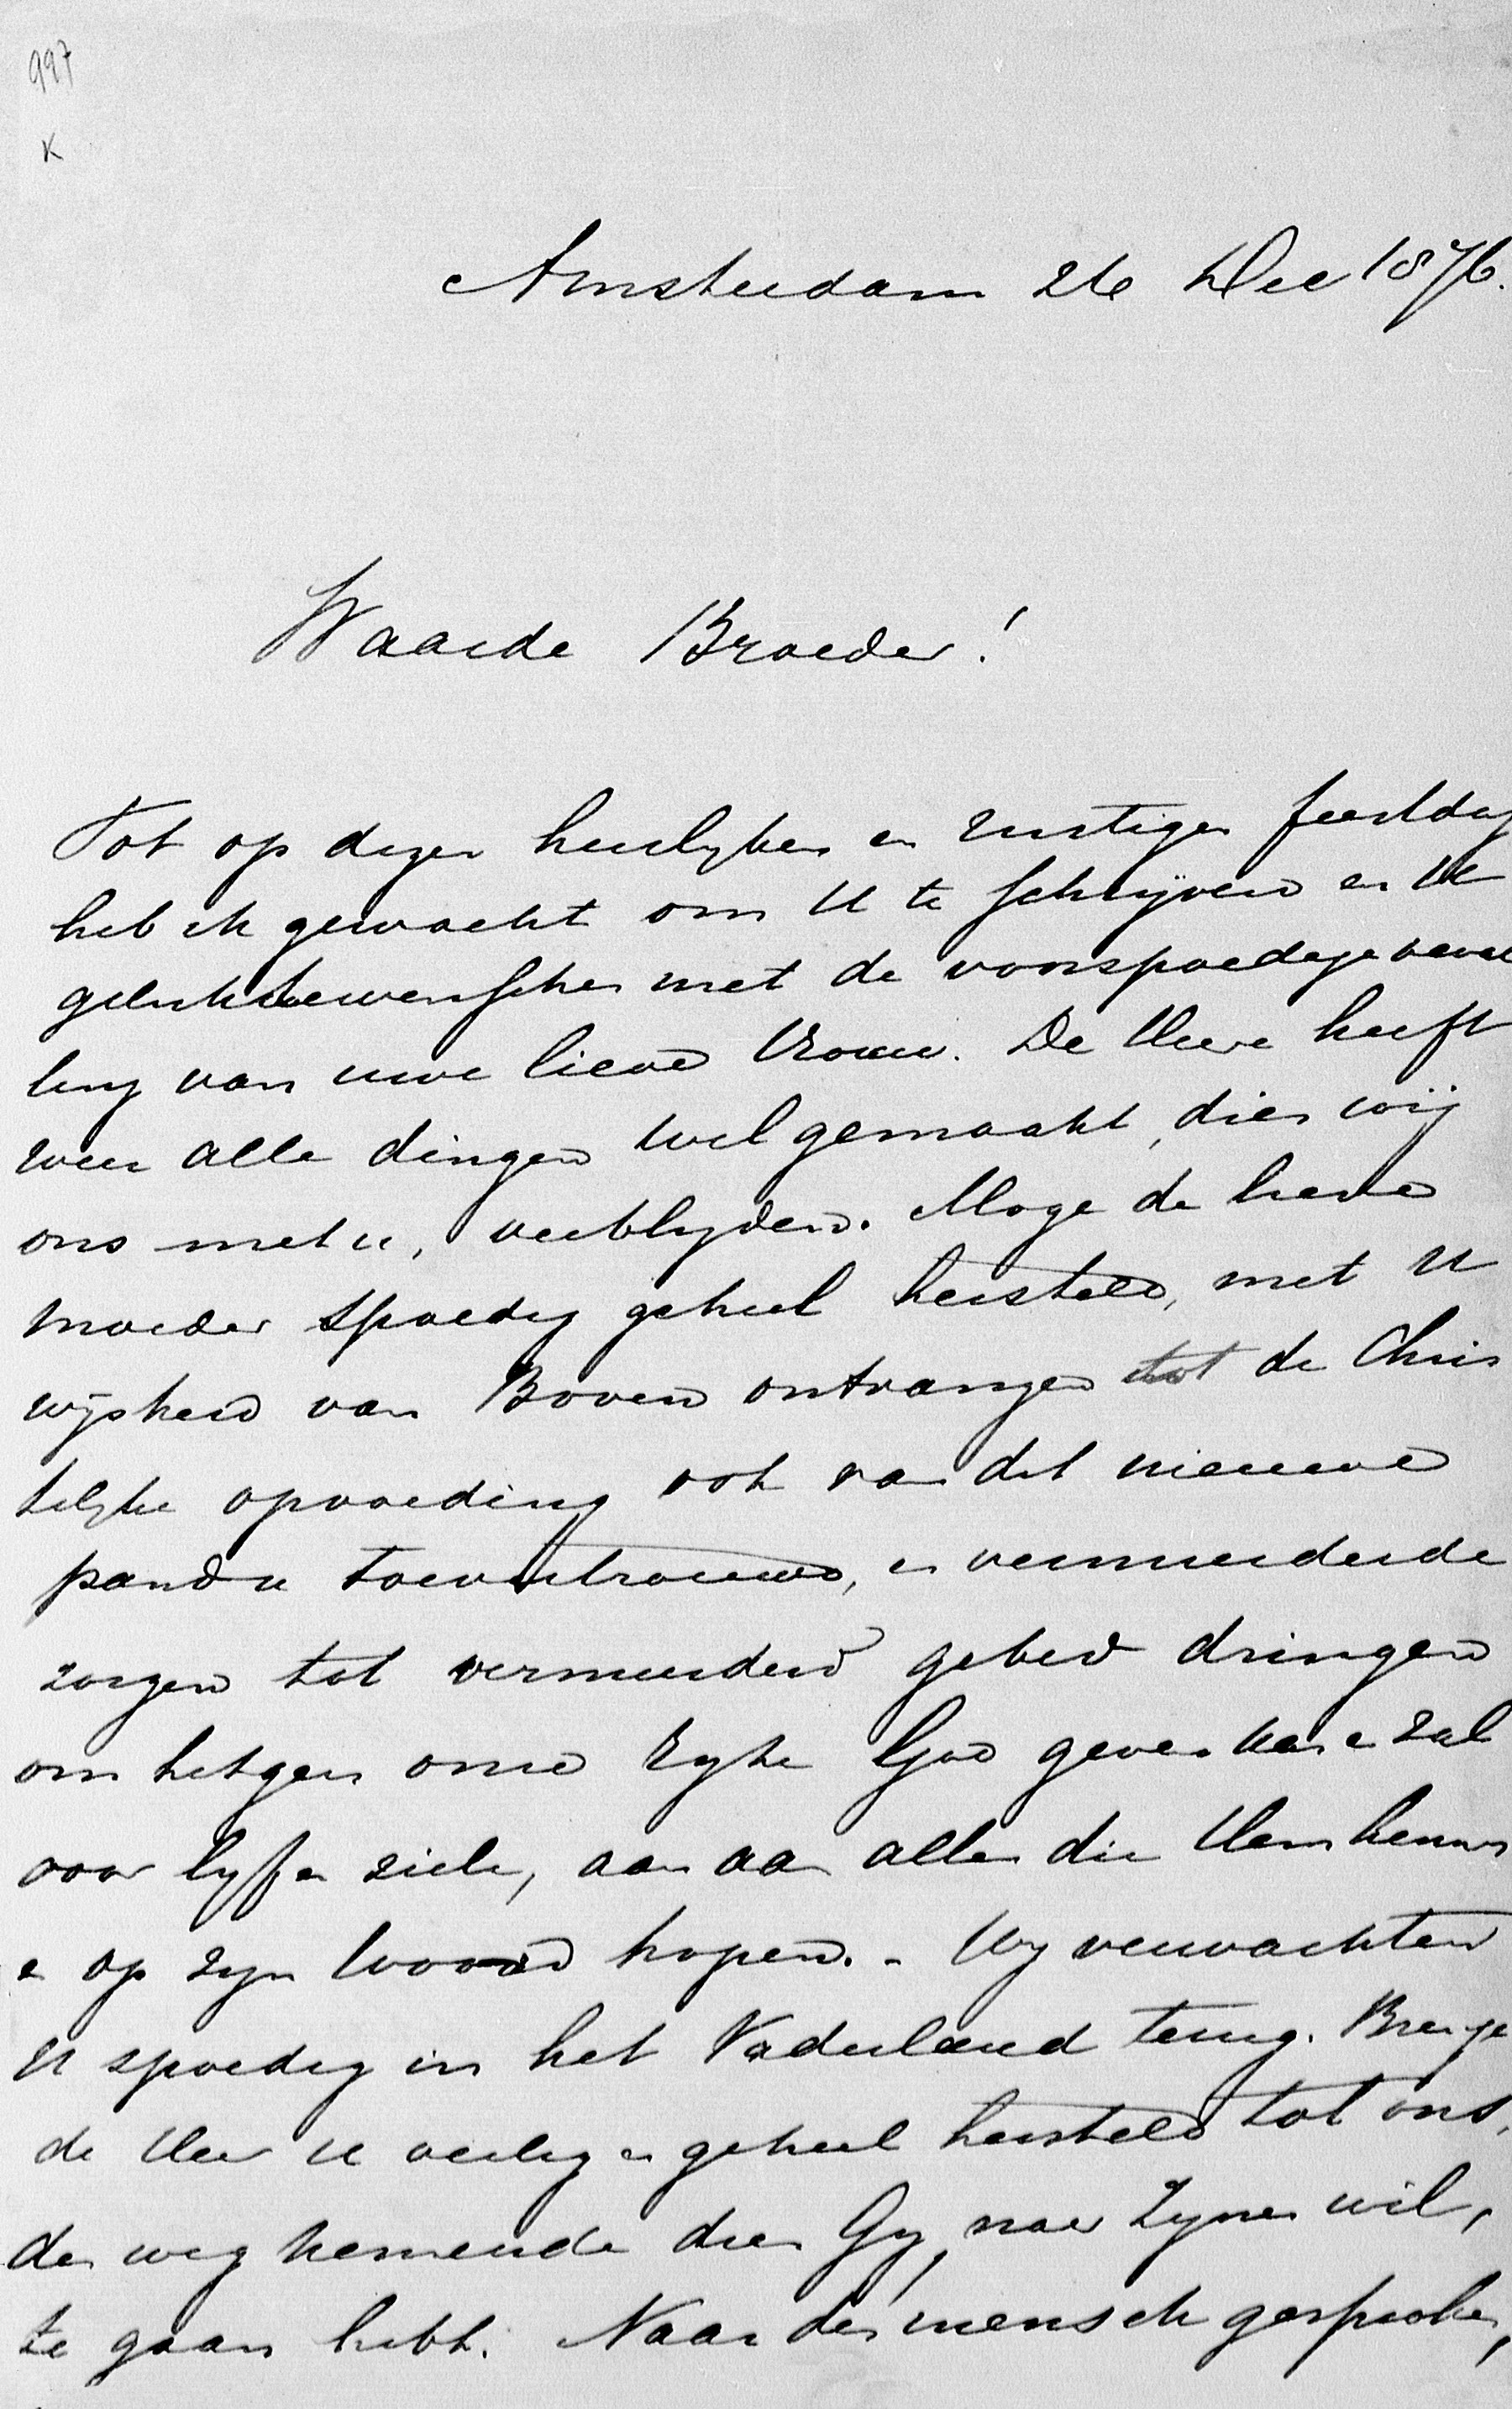 997
K
Amsterdam 26 Dec 1876.
Waarde Broeder!
Tot op dezen heerlyken en rustigen feestdag
heb ik gewacht om U te schrijven en U
geluktewenschen met de voorspoedige beval
ling van uwe lieve Vrouw. De Heere heeft
weer alle dingen wel gemaakt, dies wij
ons met u, verblyden. Moge de lieve
moeder spoedig geheel hersteld, met U
wijsheid van Boven ontvangen tot de Chris
telyke opvoeding ook van dit nieuwe
pand u toevertrouwd, en vermeerderde
zorgen tot vermeerderd gebed dringen
om hetgeen onze ryke God geven kan en zal
voor lyf en ziele, aan aan allen die Hem kennen
en op zyn Woord hopen. - Wy verwachten
U spoedig in het Vaderland terug. Brenge
de Heer U veilig en geheel hersteld tot ons,
den weg kennende dien Gy, naar Zynen wil,
te gaan hebt. Naar den mensch gesproken,